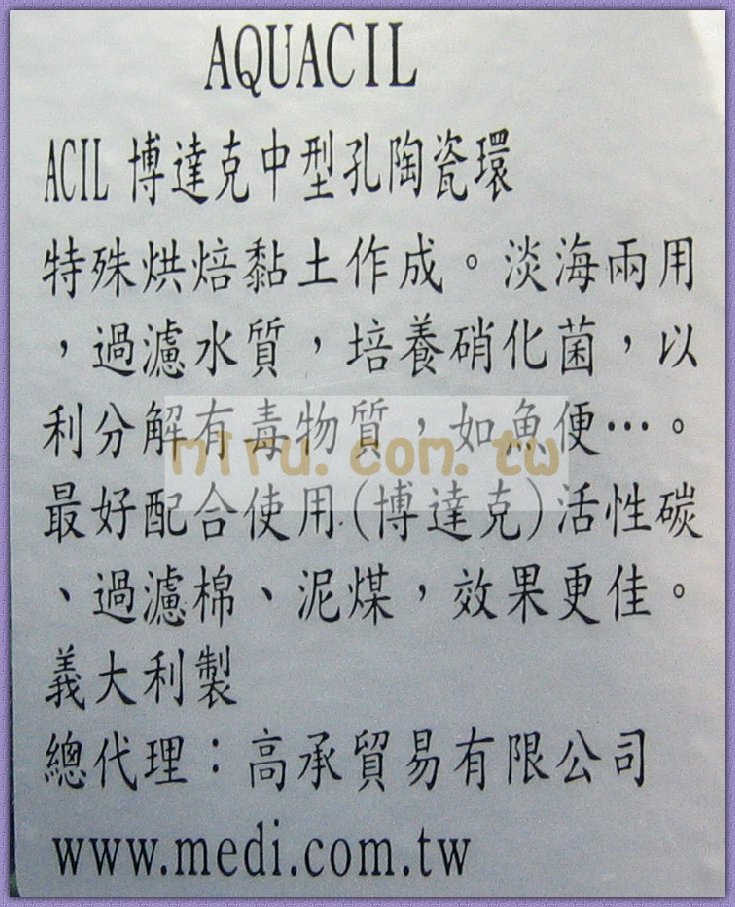 AQUACIL
ACIL 博達克中型孔陶瓷環
特殊烘焙黏土作成。淡海兩用
，過濾水質，培養硝化菌，以
利分解有毒物質，如魚便…。
miru.com.tw
最好配合使用(博達克)活性碳
、過濾棉、泥煤，效果更佳。
義大利製
總代理：高承貿易有限公司
www.medi.com.tw